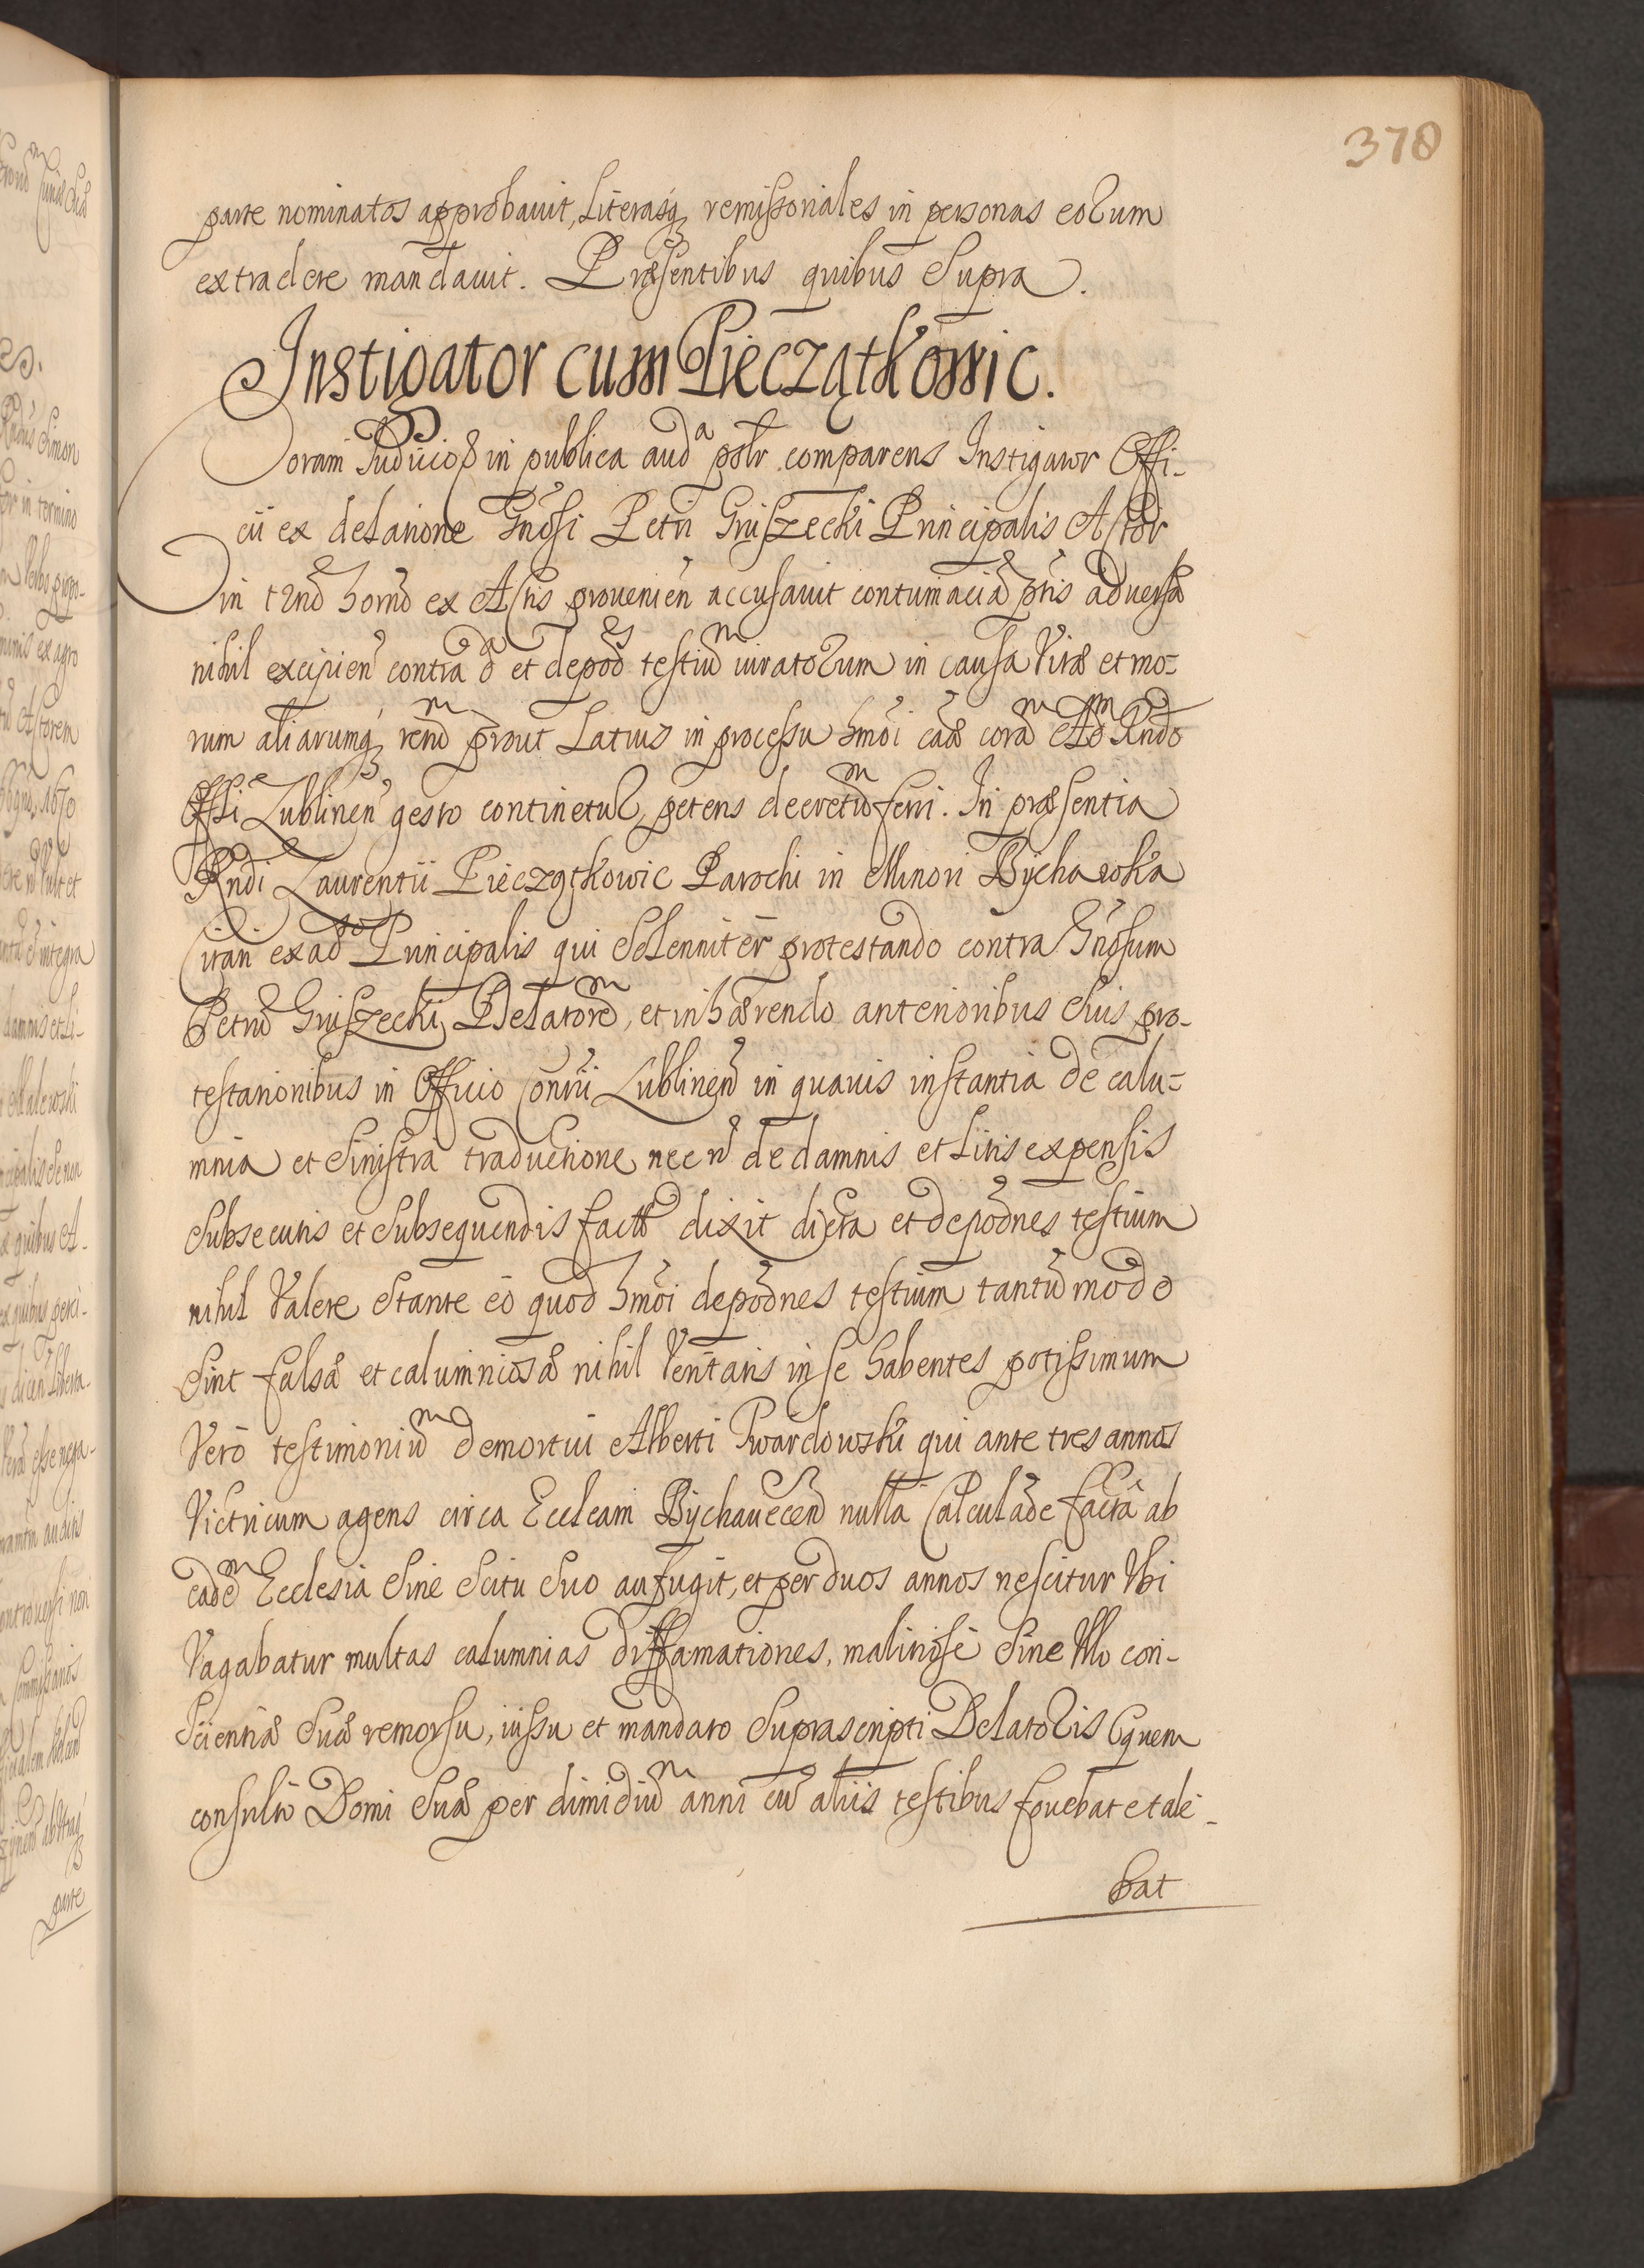 378
parte nominatos approbavit, Literasq; remissoriales in personas eorum
extradere mandavit. Præsentibus quibus Supra.
Instigator cum Pieczątkowic.
Coram Judicio in publica audᵃ psłr comparens Instigator Offi-
cii ex delatione Gnōsi Petri Griszecki Principalis Actor
in tnō hornō ex Actis provenien̄ accusavit contumaciā ptis adversæ
nihil excipien̄ contra dᵃ et depōes testiū iuratorum in causa Vitæ et mo-
rum aliarumq; rerū prout Latius in processu hmōi cāæ corā Rndō
Offi Lublinen̄ gesto continetur, petens decretū ferri. In præsentia
Rndi Laurentii Pieczątkowic Parochi in Minori Bychawka
Citati ex adso Principalis qui Solenniter protestando contra Gnōsum
Petrū Griszecki Delatorē, et inhærendo anterioribus Suis pro-
testationibus in Officio Consrii Lublinen̄ in quavis instantia de calu-
mnia et Sinistra traductione, nec n̄ de damnis et Litis expensis
Subsecutis et Subsequendis factō dixit dicta et depōnes testium
nihil Valere Stante eo quod hmōi depōnes testium tantū modo
Sint falsæ et calumniosæ nihil Veritatis in se habentes potissimum
Vero testimoniū demortui Alberti Twardowski qui ante tres annos
Victricum agens circa Eccleam Bychavecen̄ nulla Calculaōe facta ab
eadē Ecclesia Sine Scitu Suo aufugit, et per duos annos nescitur Ubi
Vagabatur multas calumnias diffamationes, malitiose Sine Ullo con-
Scientiæ Suæ remorsu, iussu et mandato Suprascripti Delatoris (quem
consulto Domi Suæ per dimidiū anni cū aliis testibus fovebat et ale-
bat